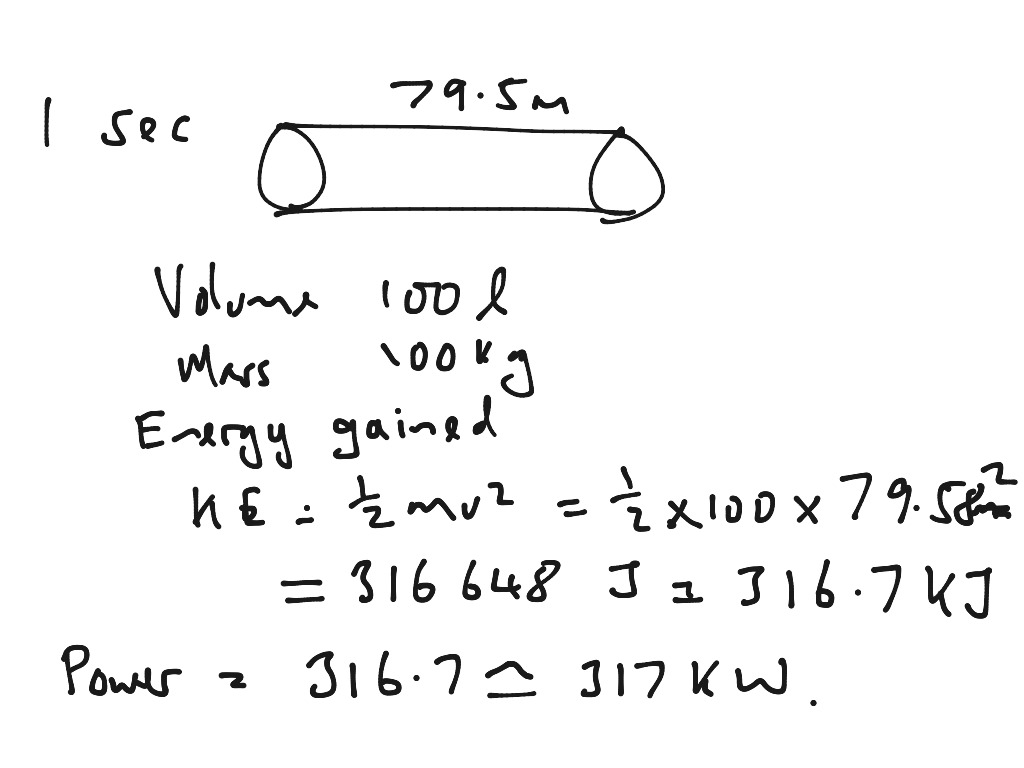 79.5m
1 sec
Volume 100 l
Mass 100 Kg
Energy gained
KE = ½ mv² = ½ x 100 x 79.58²
= 316 648 J = 316.7 KJ
Power = 316.7 ≏ 317 KW.